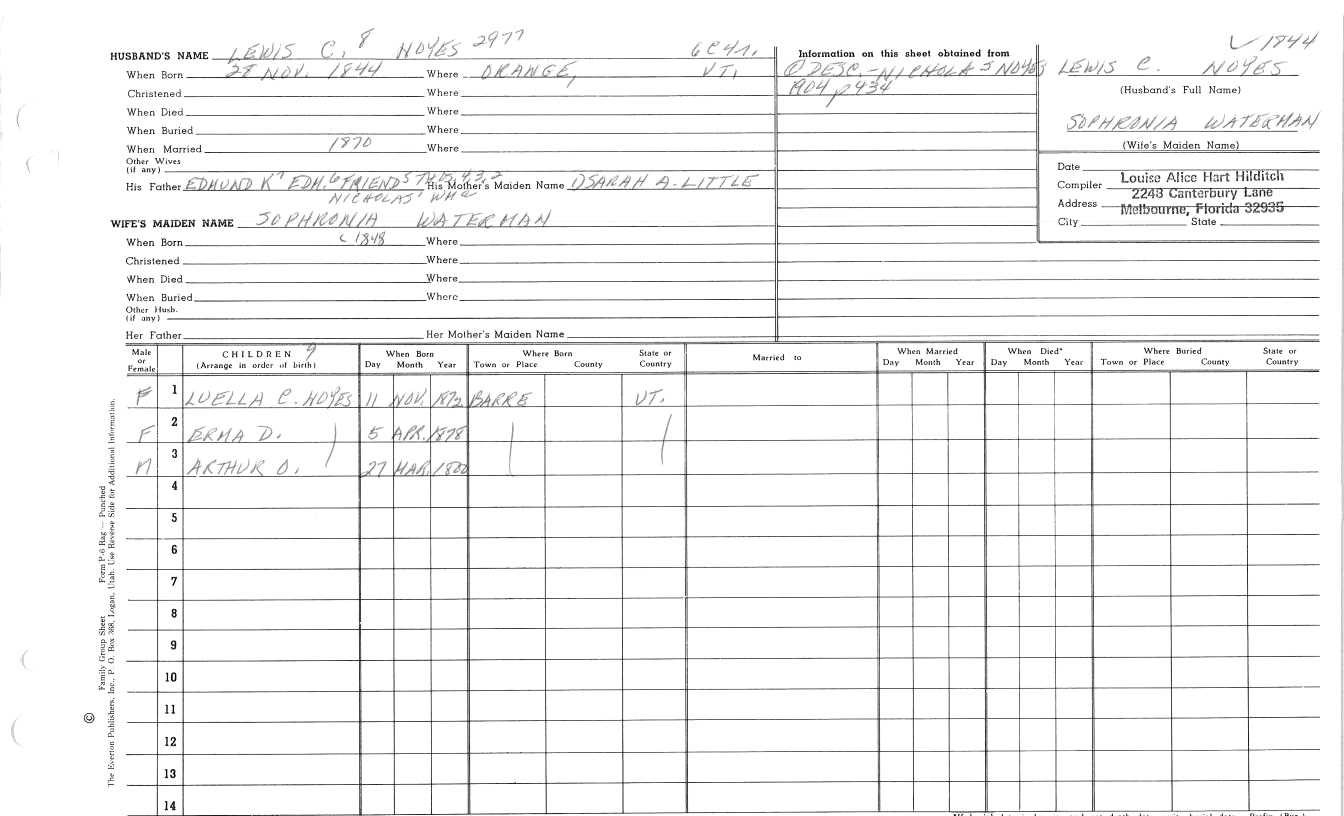 HUSBAND'S NAME LEWIS C. 8 NOYES 2977
When Born 28 NOV. 1844 Where ORANGE, VT.
Christened Where
When Died Where
When Buried Where
When Married 1870 Where
Other Wives
(if any)
His Father EDMUND K7 EDM.6 FRIEND5 His Mother's Maiden Name SARAH A. LITTLE
NICHOLAS' WM
WIFE'S MAIDEN NAME SOPHRONIA WATERMAN
When Born 1848 Where
Christened Where
When Died Where
When Buried Where
Other Husb.
(if any)
Her Father Her Mother's Maiden Name
Information on this sheet obtained from
DESC. - NICHOLAS NOYES
1904 p 434
1844
LEWIS C. NOYES
(Husband's Full Name)
SOPHRONIA WATERMAN
(Wife's Maiden Name)
Date
Compiler Louise Alice Hart Hilditch
Address 2243 Canterbury Lane
Melbourne, Florida 32935
City State
Male or Female CHILDREN 9 (Arrange in order of birth) When Born Day Month Year Where Born Town or Place County State or Country Married to When Married Day Month Year When Died* Day Month Year Where Buried Town or Place County State or Country
F 1 LUELLA C. NOYES 11 NOV. 1872 BARRE VT.
F 2 ERMA D. 5 APR. 1878
M 3 ARTHUR O. 27 MAR.
4
5
6
7
8
9
10
11
12
13
14
Family Group Sheet Form P-6 Rag — Punched
© The Everton Publishers, Inc., P. O. Box 368, Logan, Utah. Use Reverse Side for Additional Information.